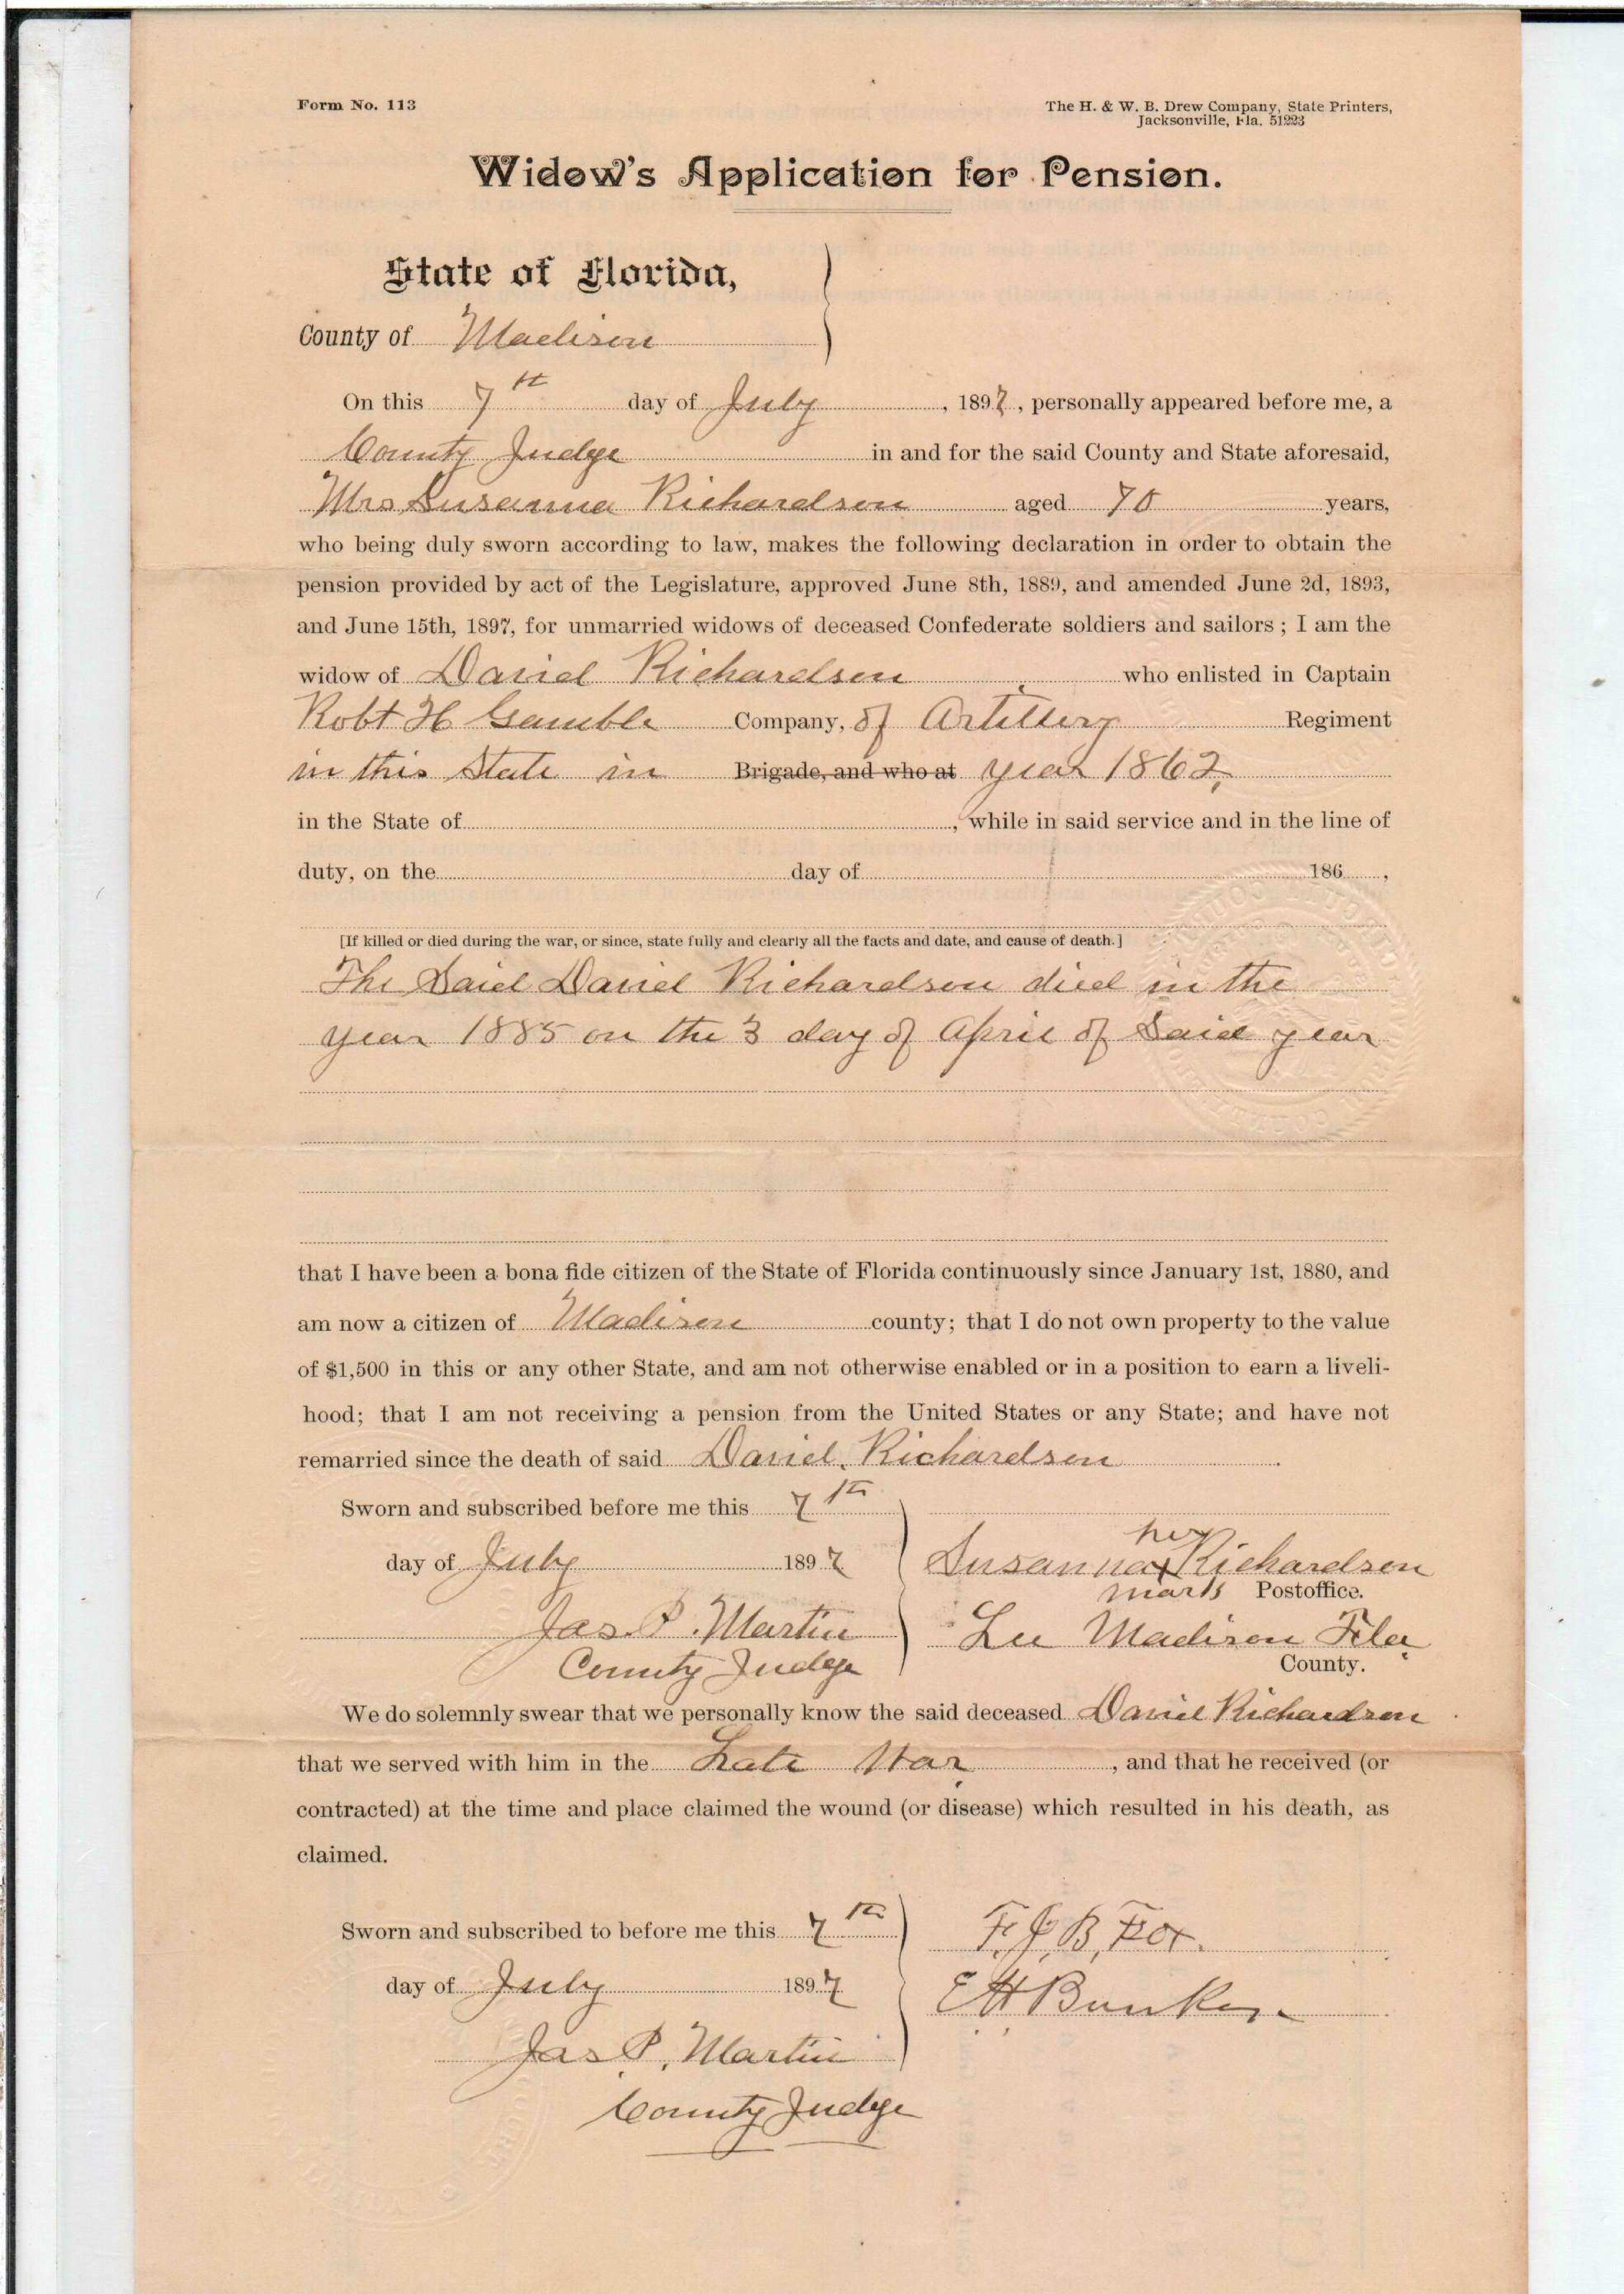 Form No. 113
The H. & W. B. Drew Company, State Printers,
Jacksonville, Fla. 51223
Widow's Application for Pension.
State of Florida,
County of Madison
On this 7th day of July, 1897, personally appeared before me, a
County Judge in and for the said County and State aforesaid,
Mrs Susanna Richardson aged 70 years,
who being duly sworn according to law, makes the following declaration in order to obtain the
pension provided by act of the Legislature, approved June 8th, 1889, and amended June 2d, 1893,
and June 15th, 1897, for unmarried widows of deceased Confederate soldiers and sailors; I am the
widow of Daniel Richardson who enlisted in Captain
Robt H Gamble Company, of Artillery Regiment
in this State in Brigade, and who at year 1862,
in the State of, while in said service and in the line of
duty, on the day of 186 ,
[If killed or died during the war, or since, state fully and clearly all the facts and date, and cause of death.]
The Said Daniel Richardson died in the
year 1885 on the 3 day of April of Said year
that I have been a bona fide citizen of the State of Florida continuously since January 1st, 1880, and
am now a citizen of Madison county; that I do not own property to the value
of $1,500 in this or any other State, and am not otherwise enabled or in a position to earn a liveli-
hood; that I am not receiving a pension from the United States or any State; and have not
remarried since the death of said Daniel Richardson.
Sworn and subscribed before me this 7th
her
day of July 1897 Susanna x Richardson
mark Postoffice.
Jas. P. Martin Lee Madison Fla
County Judge County.
We do solemnly swear that we personally know the said deceased Daniel Richardson
that we served with him in the Late War, and that he received (or
contracted) at the time and place claimed the wound (or disease) which resulted in his death, as
claimed.
Sworn and subscribed to before me this 7th F. J. B. Fox.
day of July 1897 E H Bunker
Jas P. Martin
County Judge